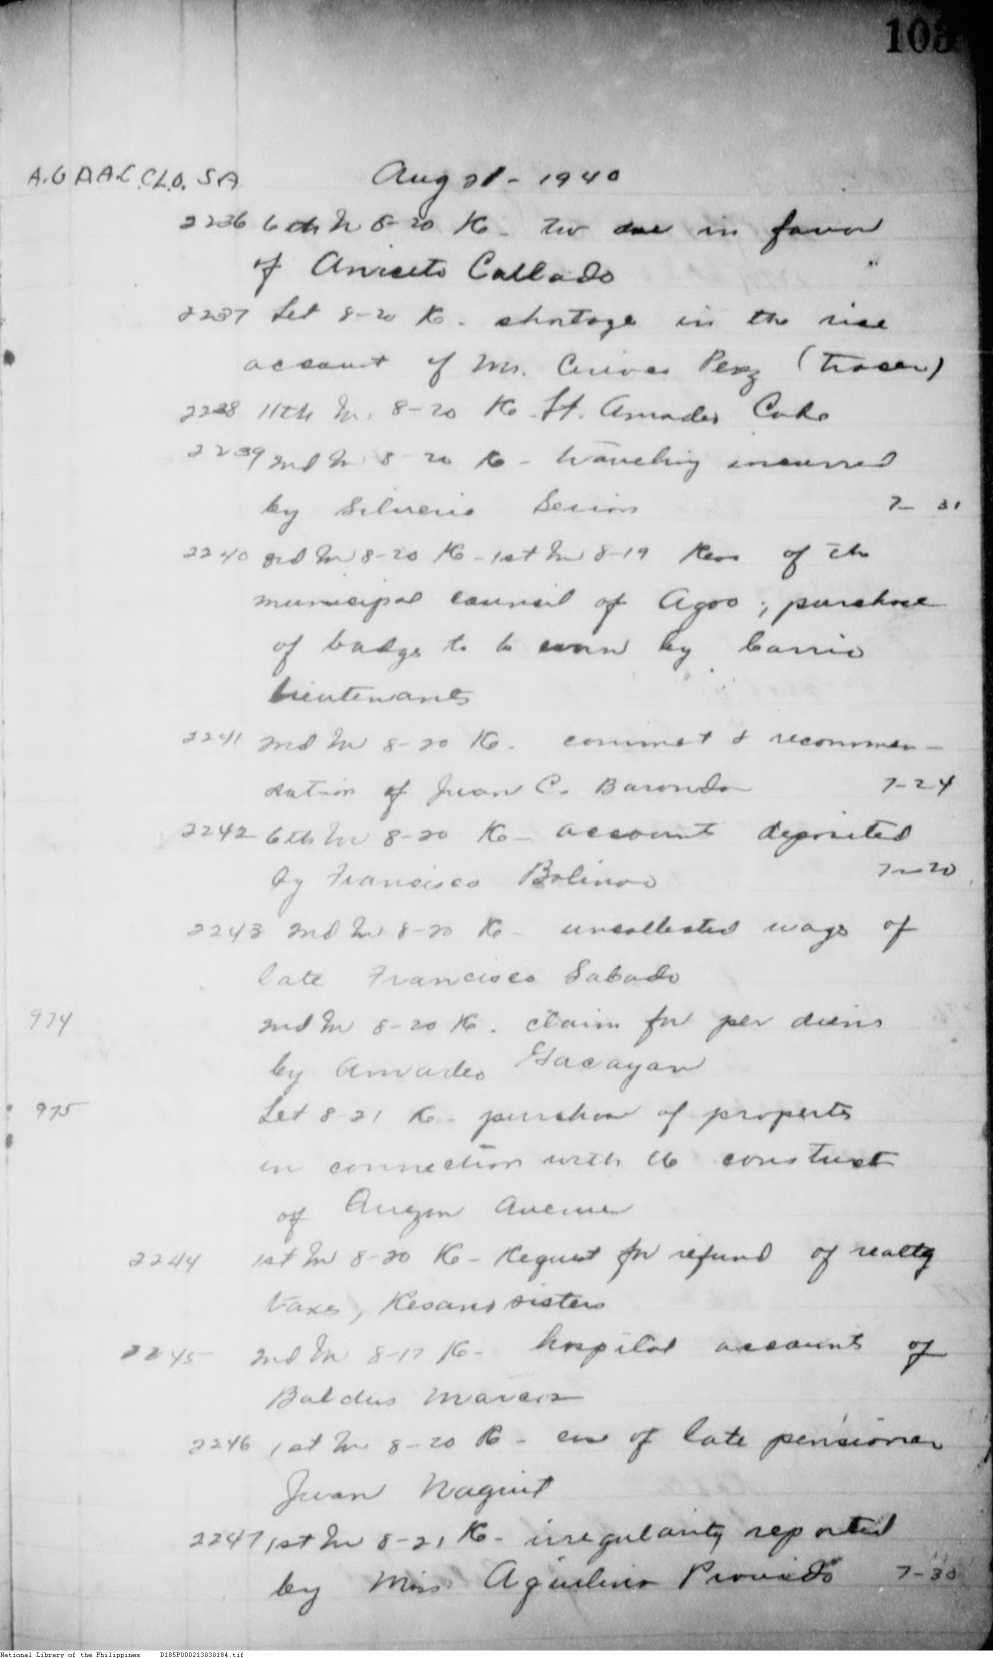 103
A.G D.A.C. C.L.O. S A Aug 21 - 1940
2236 6th In 8-20 K - two in favor
of Aniceto Collado
2237 Let 8-20 K - shortage in the rice
account of Mr. Perez
2238 11th In. 8-20 K - Lt. Amades
2239 2nd In 8-20 K - traveling incurred
by Silverio 7- 31
2240 3rd In 8-20 K - 1st In 8-19 Res of the
municipal council of Agoo ; purchase
of badge to be worn by barrio
lieutenants
2241 2nd In 8-20 K - comment & recommen-
dation of Juan C. 7-24
2242 6th In 8-20 K - account deposited
by Francisco 7-20
2243 2nd In 8-20 K - uncollected wage of
late Francisco Sabado
974 2nd In 8-20 K - claim for per diems
by Amadeo Gacayan
975 Let 8-21 K - purchase of property
in connection with the construct
of Avenue
2244 1st In 8-20 K - Request for refund of realty
taxes, sisters
2245 2nd In 8-17 K - hospital accounts of
2246 1st In 8-20 K - case of late pensioner
Juan Naguit
2247 1st In 8-21 K - irregularity reported
by Miss Aquilina Provido 7-30
National Library of the Philippines D185P000213030184.tif